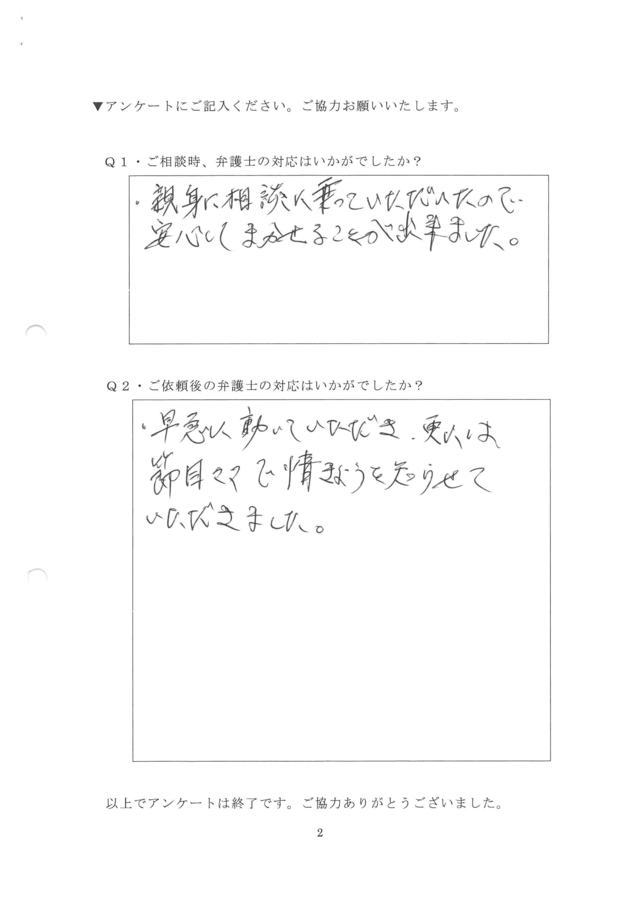 ▼アンケートにご記入ください。ご協力お願いいたします。
Q1・ご相談時、弁護士の対応はいかがでしたか？
・親身に相談に乗っていただいたので
安心してまかせることが出来ました。
Q2・ご依頼後の弁護士の対応はいかがでしたか？
・早急に動いていただき、更には
節目々々で情きょうを知らせて
いただきました。
以上でアンケートは終了です。ご協力ありがとうございました。
2